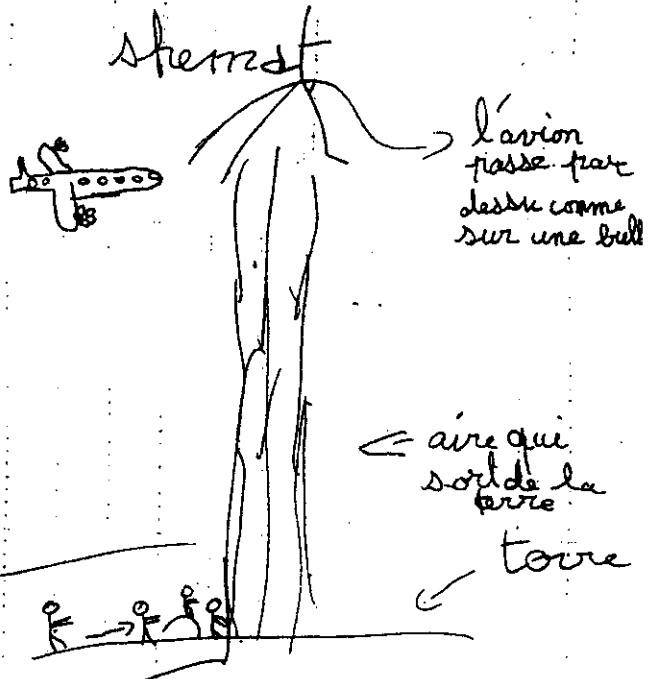 shemat
l'avion
passe par
dessu comme
sur une bull
aire qui
sort de la
terre
terre